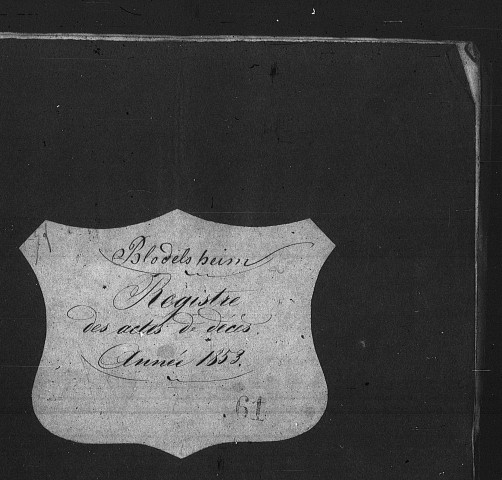 Blodelsheim
Registre
des actes de décès.
Année 1853.
61